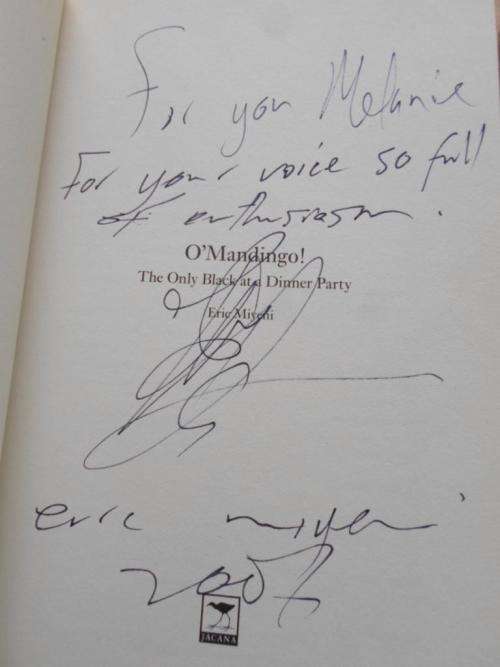 For you Melanie
For your voice so full
of enthusiasm.
O'Mandingo!
The Only Black at a Dinner Party
Eric Miyeni
eric miyeni
2007
JACANA